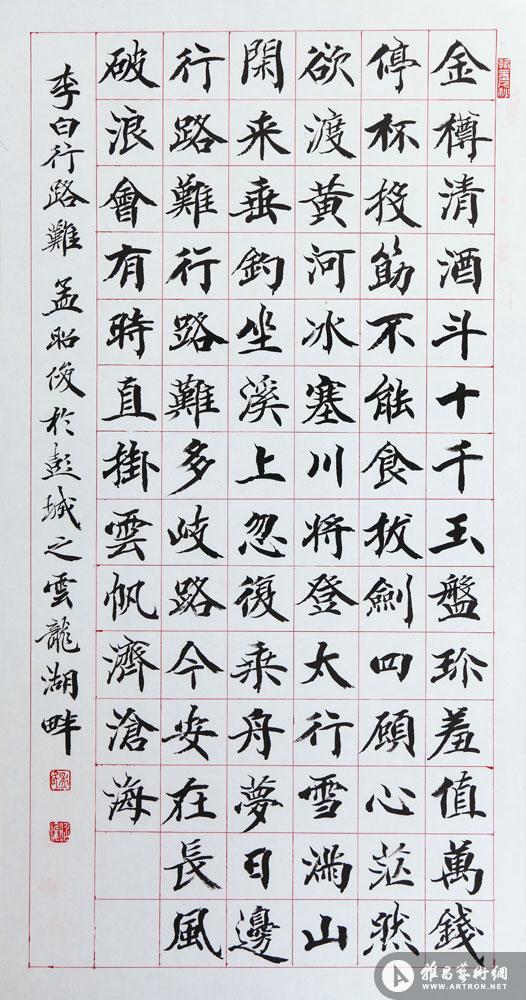 金樽清酒斗十千玉盤珍羞值萬錢
停杯投筯不能食拔劍四顧心茫然
欲渡黃河冰塞川將登太行雪滿山
閑来垂釣坐溪上忽復乘舟夢日邊
行路難行路難多岐路今安在長風
破浪會有時直掛雲帆濟滄海
李白行路難 孟昭俊於彭城之雲龍湖畔
雅昌藝術網
WWW.ARTRON.NET